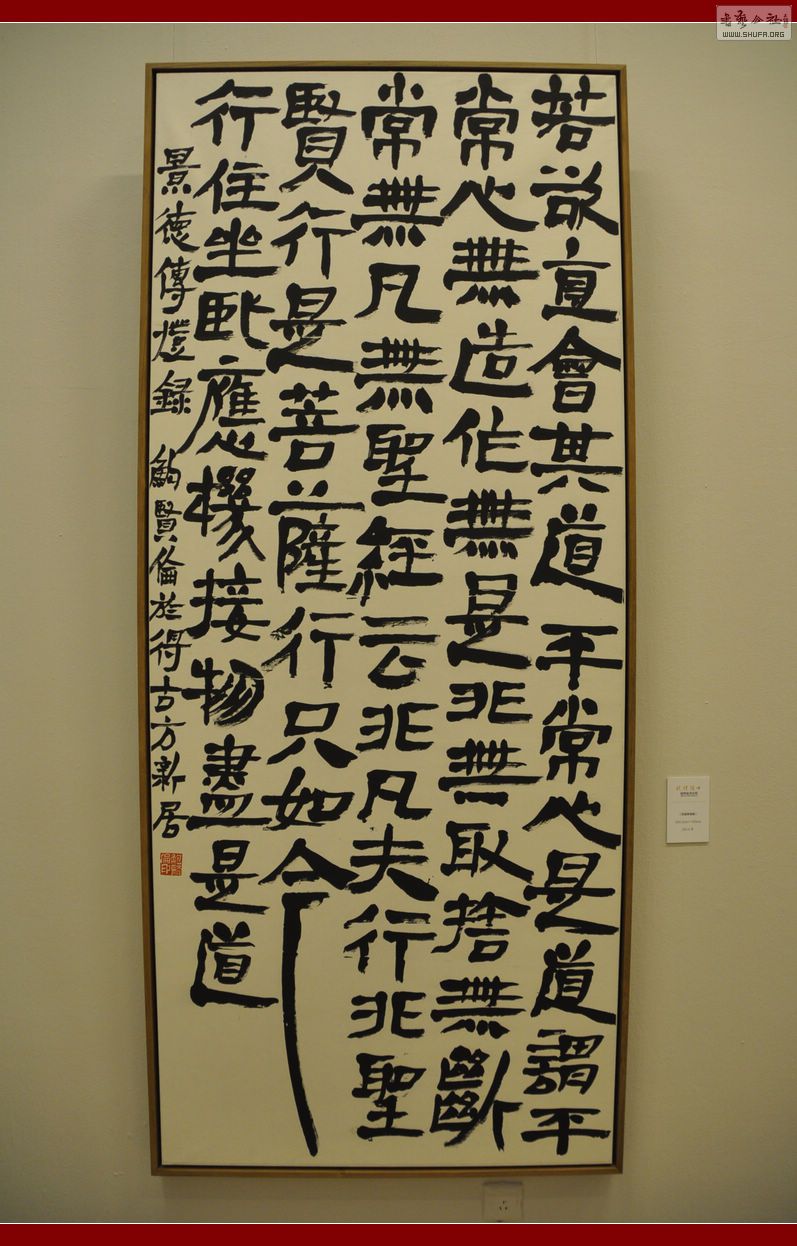 若欲直會其道平常心是道謂平
常心無造作無是非無取捨無斷
常無凡無聖經云非凡夫行非聖
賢行是菩薩行只如今
行住坐臥應機接物盡是道
景德傳燈録 鮑賢倫於得古方新居
WWW.SHUFA.ORG